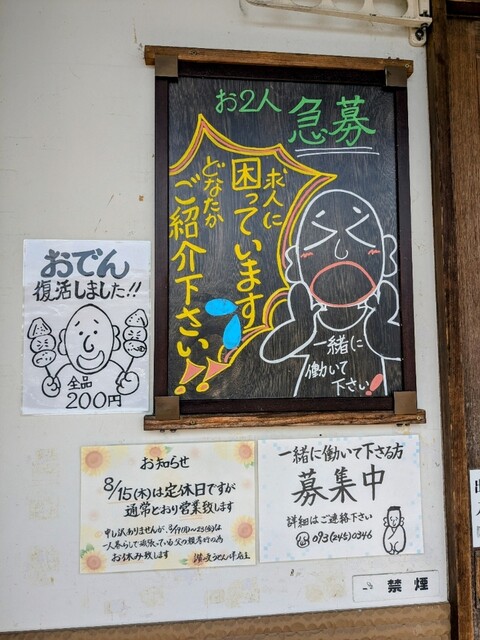 お2人 急募
求人に
困っています
どなたか
ご紹介下さい!!
一緒に
働いて
下さい!
おでん
復活しました!!
全品
200円
お知らせ
8/15(木)は定休日ですが
通常どおり営業致します
申し訳ありませんが、
一人暮らしで頑張っている父の
お休み致します
一緒に働いて下さる方
募集中
詳細はご連絡下さい
093(245)0346
禁煙